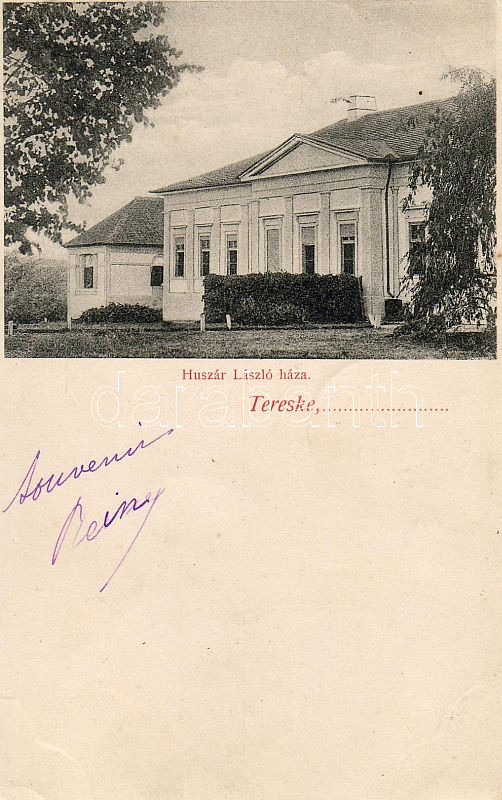 Huszár László háza.
Tereske,........................
darabanth
Souvenir